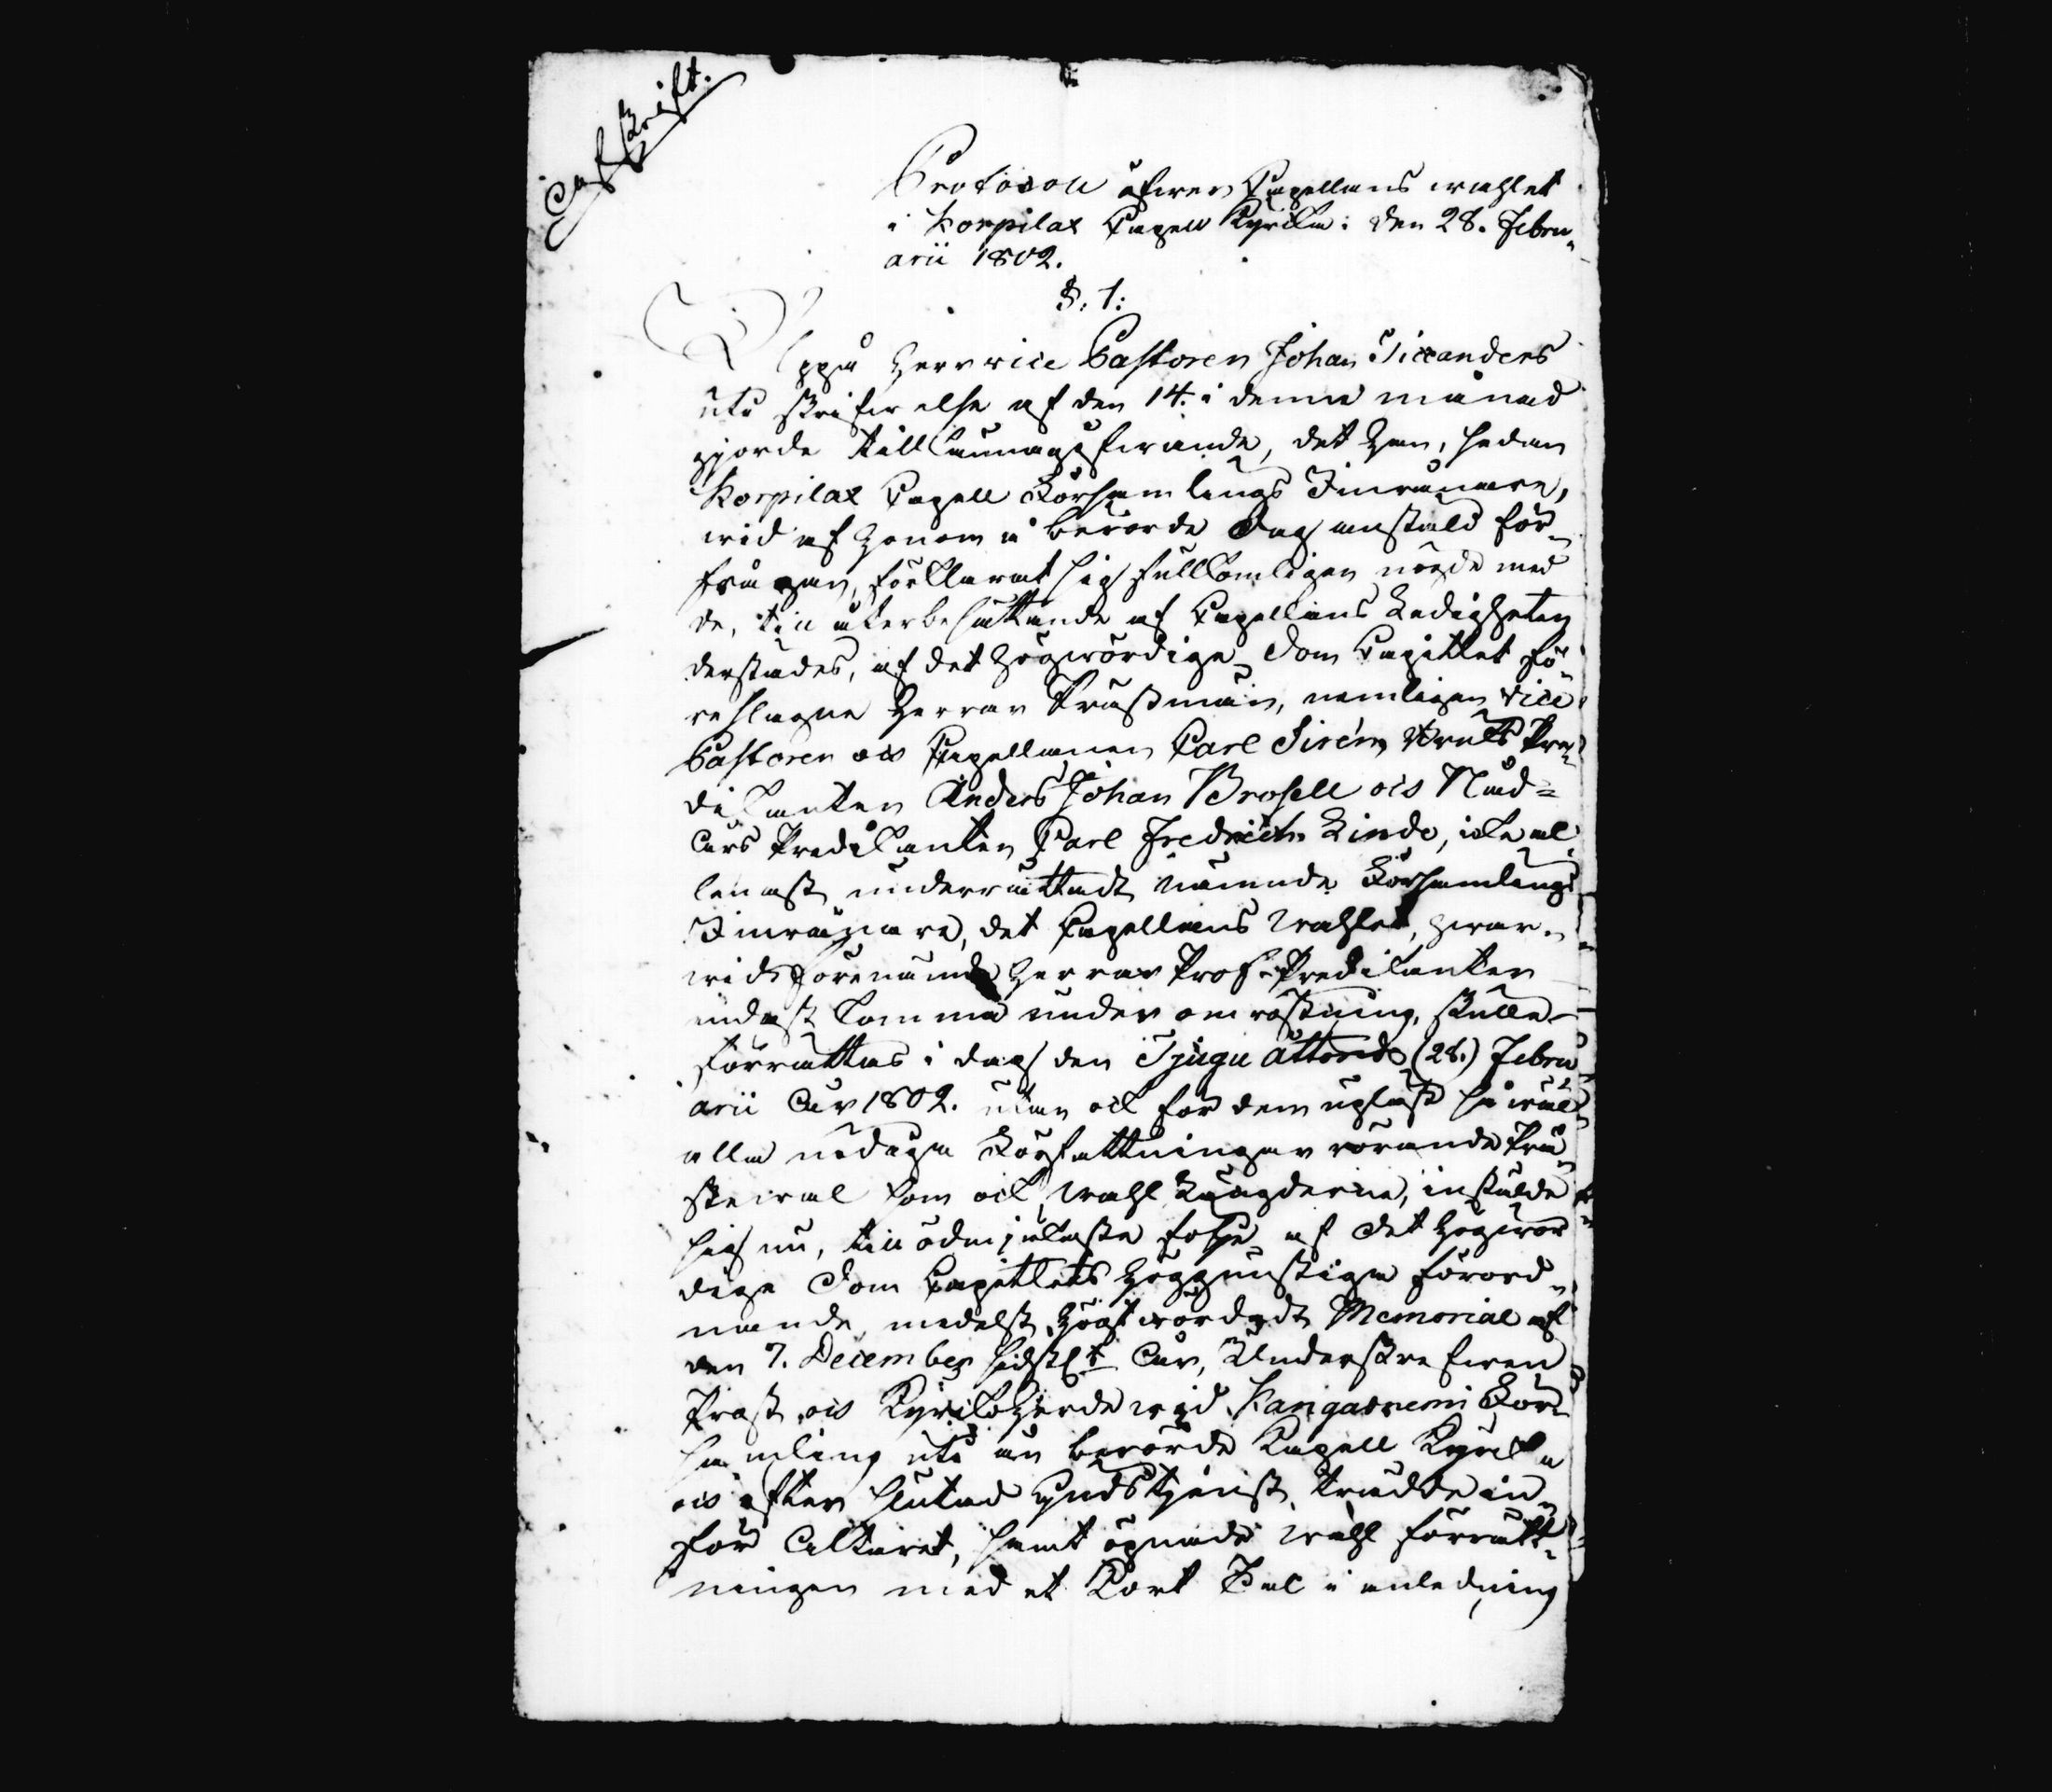 Afskrift.
Protocoll öfwer Capellans wahlet
i Korpilax Capell Kyrka: den 28. Febru-
arii 1802.
§. 1:
Uppå Herr vice Pastoren Johan Ticcanders
uti skrifwelse af den 14. i denne månad
gjorde tillkännagifwande, det Han, sedan
Korpilax Capell Församlings Innevånare,
wid af Honom å berörde dag anstäld för-
frågan, förklarat sig fullkomligen nögde med
de, till återbesättande af Capellans Ledigheten
derstädes, af det Högwördige Dom Capitlet fö-
reslagne Herrar Trausmän, nemligen vice
Pastoren och Capellanen Carl Sirén, Bruks Pre-
dikanten Anders Johan Brosell och Nåd-
Års Predikanten Carl Fredrich Linde, icke al-
lenast underrättadt nämnde Församlings
Innevånare, det Capellans Wahlet, hwar-
wid förenämde Herrar Prof-Predikanter
endast komma under omröstning, skulle
förrättas i dag den Tjugu åttonde (28.) Febru
arii Åhr 1802. utan ock för dem upläst så wäl
alla nödiga Författningar rörande Prä-
stewal som ock Wahl Längderne, instälde
sig nu, till ödmjukaste följe af det Högwör
dige Dom Capitlets Höggunstiga förord-
nande, medelst Högtwördadt Memorial af
den 7. December sidstl. Åhr, Underskrefwen
Prost och Kyrkoherde wid Kangasniemi För-
samling uti än berörde Capell Kyrka
och efter slutad Gudstjenst, trädde in-
för Altaret, samt öpnade Wahl förrätt-
ningen med et kort Tal i anledning